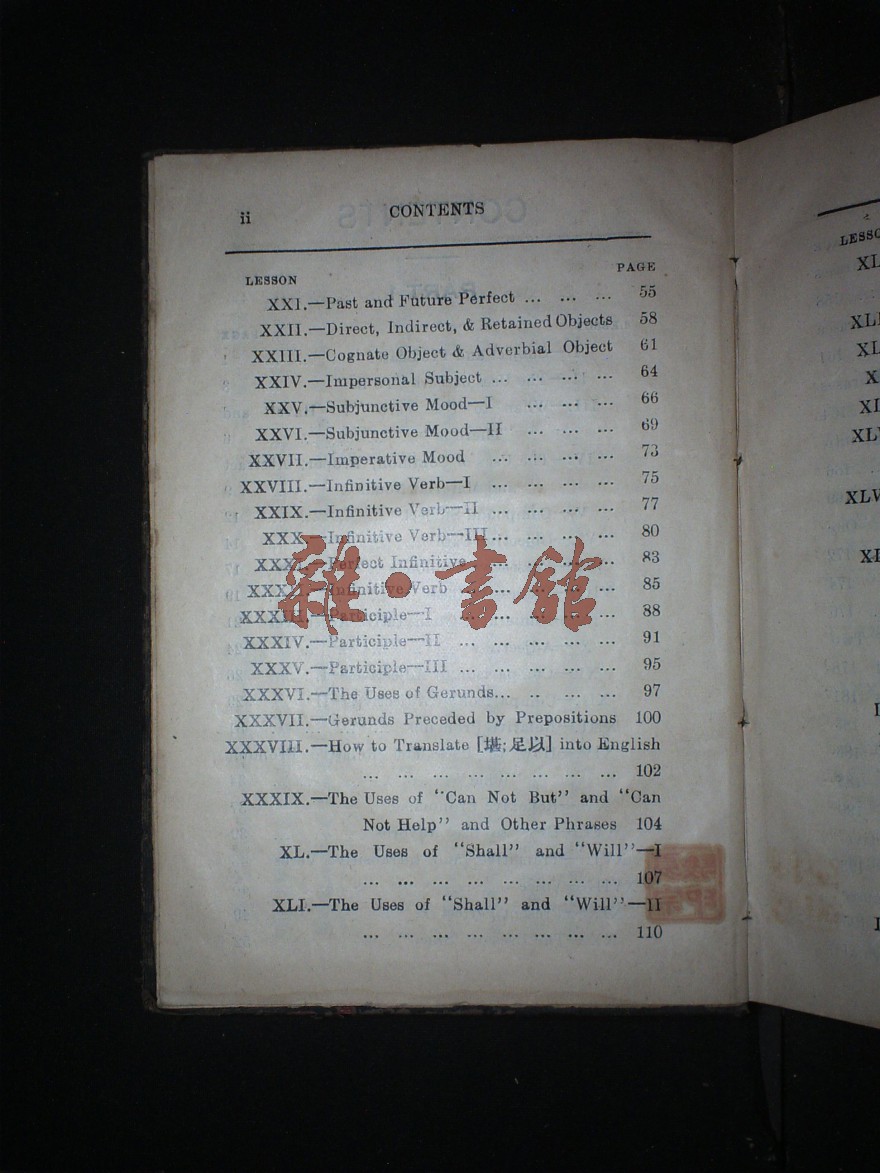 ii CONTENTS
LESSON PAGE
XXI.—Past and Future Perfect ... ... ... 55
XXII.—Direct, Indirect, & Retained Objects 58
XXIII.—Cognate Object & Adverbial Object 61
XXIV.—Impersonal Subject ... ... ... ... 64
XXV.—Subjunctive Mood—I ... ... ... 66
XXVI.—Subjunctive Mood—II ... ... ... 69
XXVII.—Imperative Mood ... ... ... ... 73
XXVIII.—Infinitive Verb—I ... ... ... ... 75
XXIX.—Infinitive Verb—II ... ... ... ... 77
XXX.—Infinitive Verb—III... ... ... ... 80
XXXI.—Perfect Infinitive ... ... ... ... 83
XXXII.—Infinitive Verb ... ... ... ... 85
XXXIII.—Participle—I ... ... ... ... ... 88
XXXIV.—Participle—II ... ... ... ... ... 91
XXXV.—Participle—III ... ... ... ... ... 95
XXXVI.—The Uses of Gerunds... .. ... ... 97
XXXVII.—Gerunds Preceded by Prepositions 100
XXXVIII.—How to Translate [堪; 足以] into English
... ... ... ... ... ... ... ... 102
XXXIX.—The Uses of "Can Not But" and "Can
Not Help" and Other Phrases 104
XL.—The Uses of "Shall" and "Will"—I
... ... ... ... ... ... ... ... 107
XLI.—The Uses of "Shall" and "Will"—II
... ... ... ... ... ... ... ... 110
雜·書館